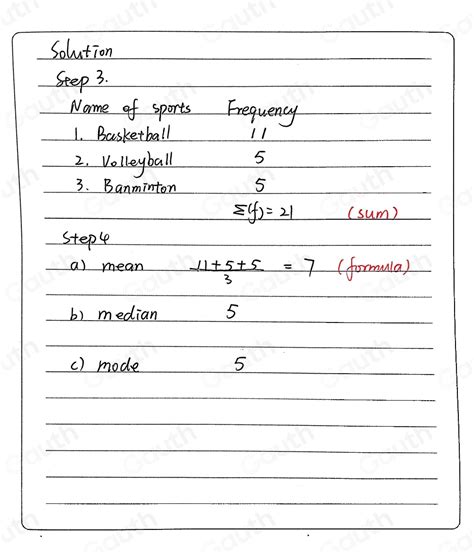 Solution
Step 3.
Name of sports Frequency
1. Basketball 11
2. Volleyball 5
3. Banminton 5
Σ(f) = 21 (sum)
Step 4
a) mean 11+5+5/3 = 7 (formula)
b) median 5
c) mode 5